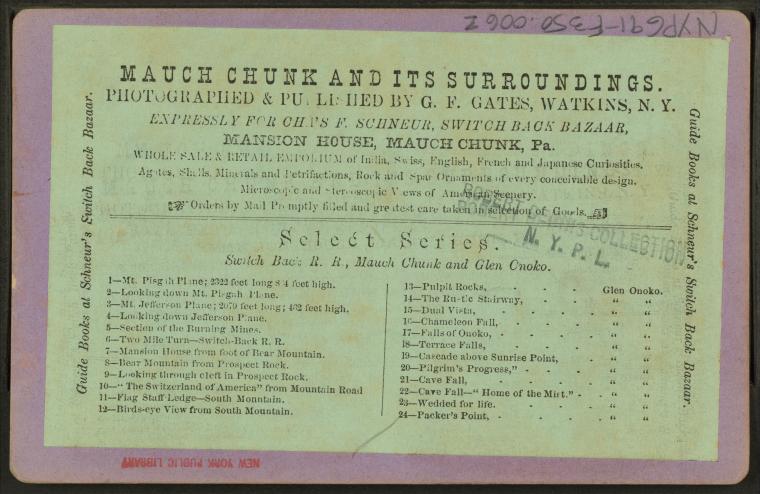 NYPG91-F350.006Z
MAUCH CHUNK AND ITS SURROUNDINGS.
PHOTOGRAPHED & PUBLISHED BY G. F. GATES, WATKINS, N. Y.
EXPRESSLY FOR CHA'S F. SCHNEUR, SWITCH BACK BAZAAR,
MANSION HOUSE, MAUCH CHUNK, Pa.
WHOLE SALE & RETAIL EMPOLIUM of India, Swiss, English, French and Japanese Curiosities.
Agates, Shells, Minerals and Petrifactions, Rock and Spar Ornaments of every conceivable design.
Microscopic and Stereoscopic Views of American Scenery.
Orders by Mail Promptly filled and greatest care taken in selection of Goods.
ROBERT DENNIS COLLECTION
N. Y. P. L.
Select Series.
Switch Back R. R., Mauch Chunk and Glen Onoko.
1—Mt. Pisgah Plane; 2322 feet long 8 4 feet high.
2—Looking down Mt. Pisgah Plane.
3—Mt. Jefferson Plane; 2070 feet long; 462 feet high.
4—Looking down Jefferson Plane.
5—Section of the Burning Mines.
6—Two Mile Turn—Switch-Back R. R.
7—Mansion House from foot of Bear Mountain.
8—Bear Mountain from Prospect Rock.
9—Looking through cleft in Prospect Rock.
10—"The Switzerland of America" from Mountain Road
11—Flag Staff Ledge—South Mountain.
12—Birds-eye View from South Mountain.
13—Pulpit Rocks, - - - Glen Onoko.
14—The Rustic Stairway, - - - " "
15—Dual Vista, - - - - " "
16—Chameleon Fall, - - - - " "
17—Falls of Onoko, - - - - " "
18—Terrace Falls, - - - - " "
19—Cascade above Sunrise Point, - - " "
20—Pilgrim's Progress," - - - - " "
21—Cave Fall, - - - - " "
22—Cave Fall—"Home of the Mist." - - " "
23—Wedded for life. - - - - " "
24—Packer's Point, - - - - " "
Guide Books at Schneur's Switch Back Bazaar.
Guide Books at Schneur's Switch Back Bazaar.
NEW YORK PUBLIC LIBRARY